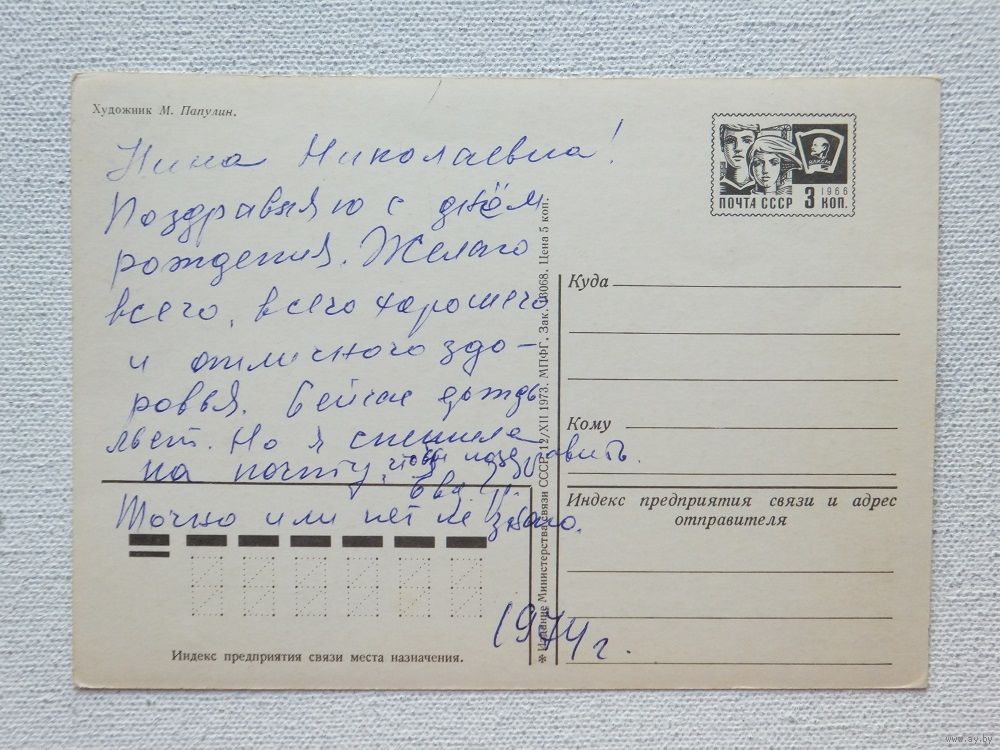 Художник М. Папулин.
Нина Николаевна!
Поздравляю с днём
рождения. Желаю
всего, всего хорошего
и отличного здо-
ровья. Сейчас дождь
льёт. Но я спешила
на почту, чтобы поздравить.
Точно или нет не знаю.
1974 г.
ВЛКСМ
1966
ПОЧТА СССР 3 КОП.
Куда
Кому
Индекс предприятия связи и адрес
отправителя
Индекс предприятия связи места назначения.
✻ Издание Министерства связи СССР. 12/XII 1973. МПФГ. Зак. 13068. Цена 5 коп.
www.ay.by